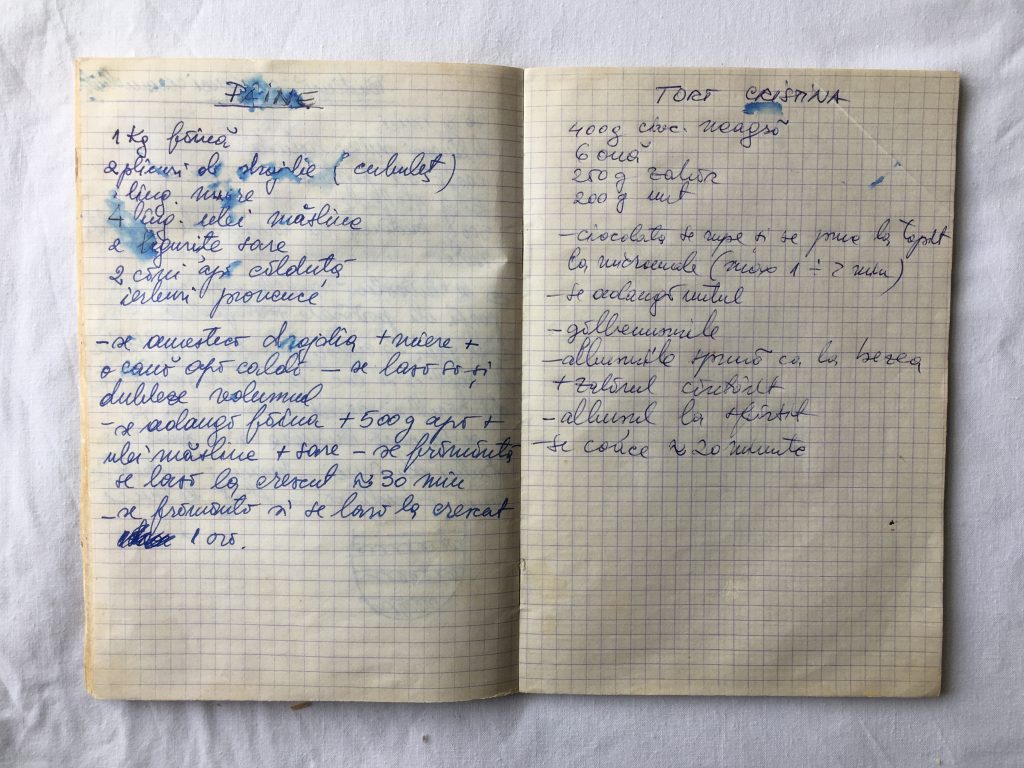 PÂINE
1 Kg făină
2 plicuri de drojdie (cubuleț)
1 ling. miere
4 ling. ulei măsline
2 lingurițe sare
2 căni apă călduță
ierburi provence
- se amestecă drojdia + miere +
o cană apă caldă - se lasă să-și
dubleze volumul
- se adaugă făina + 500g apă +
ulei măsline + sare - se frământă
se lasă la crescut ≈ 30 min
- se frământă și se lasă la crescut
1 oră.
TORT CRISTINA
400g cioc. neagră
6 ouă
250g zahăr
200g unt
- ciocolata se rupe și se pune la topit
la microunde (max 1 ÷ 2 min)
- se adaugă untul
- gălbenușurile
- albușurile spumă ca la bezea
+ zahărul
- albușul la sfârșit
- se coace ≈ 20 minute